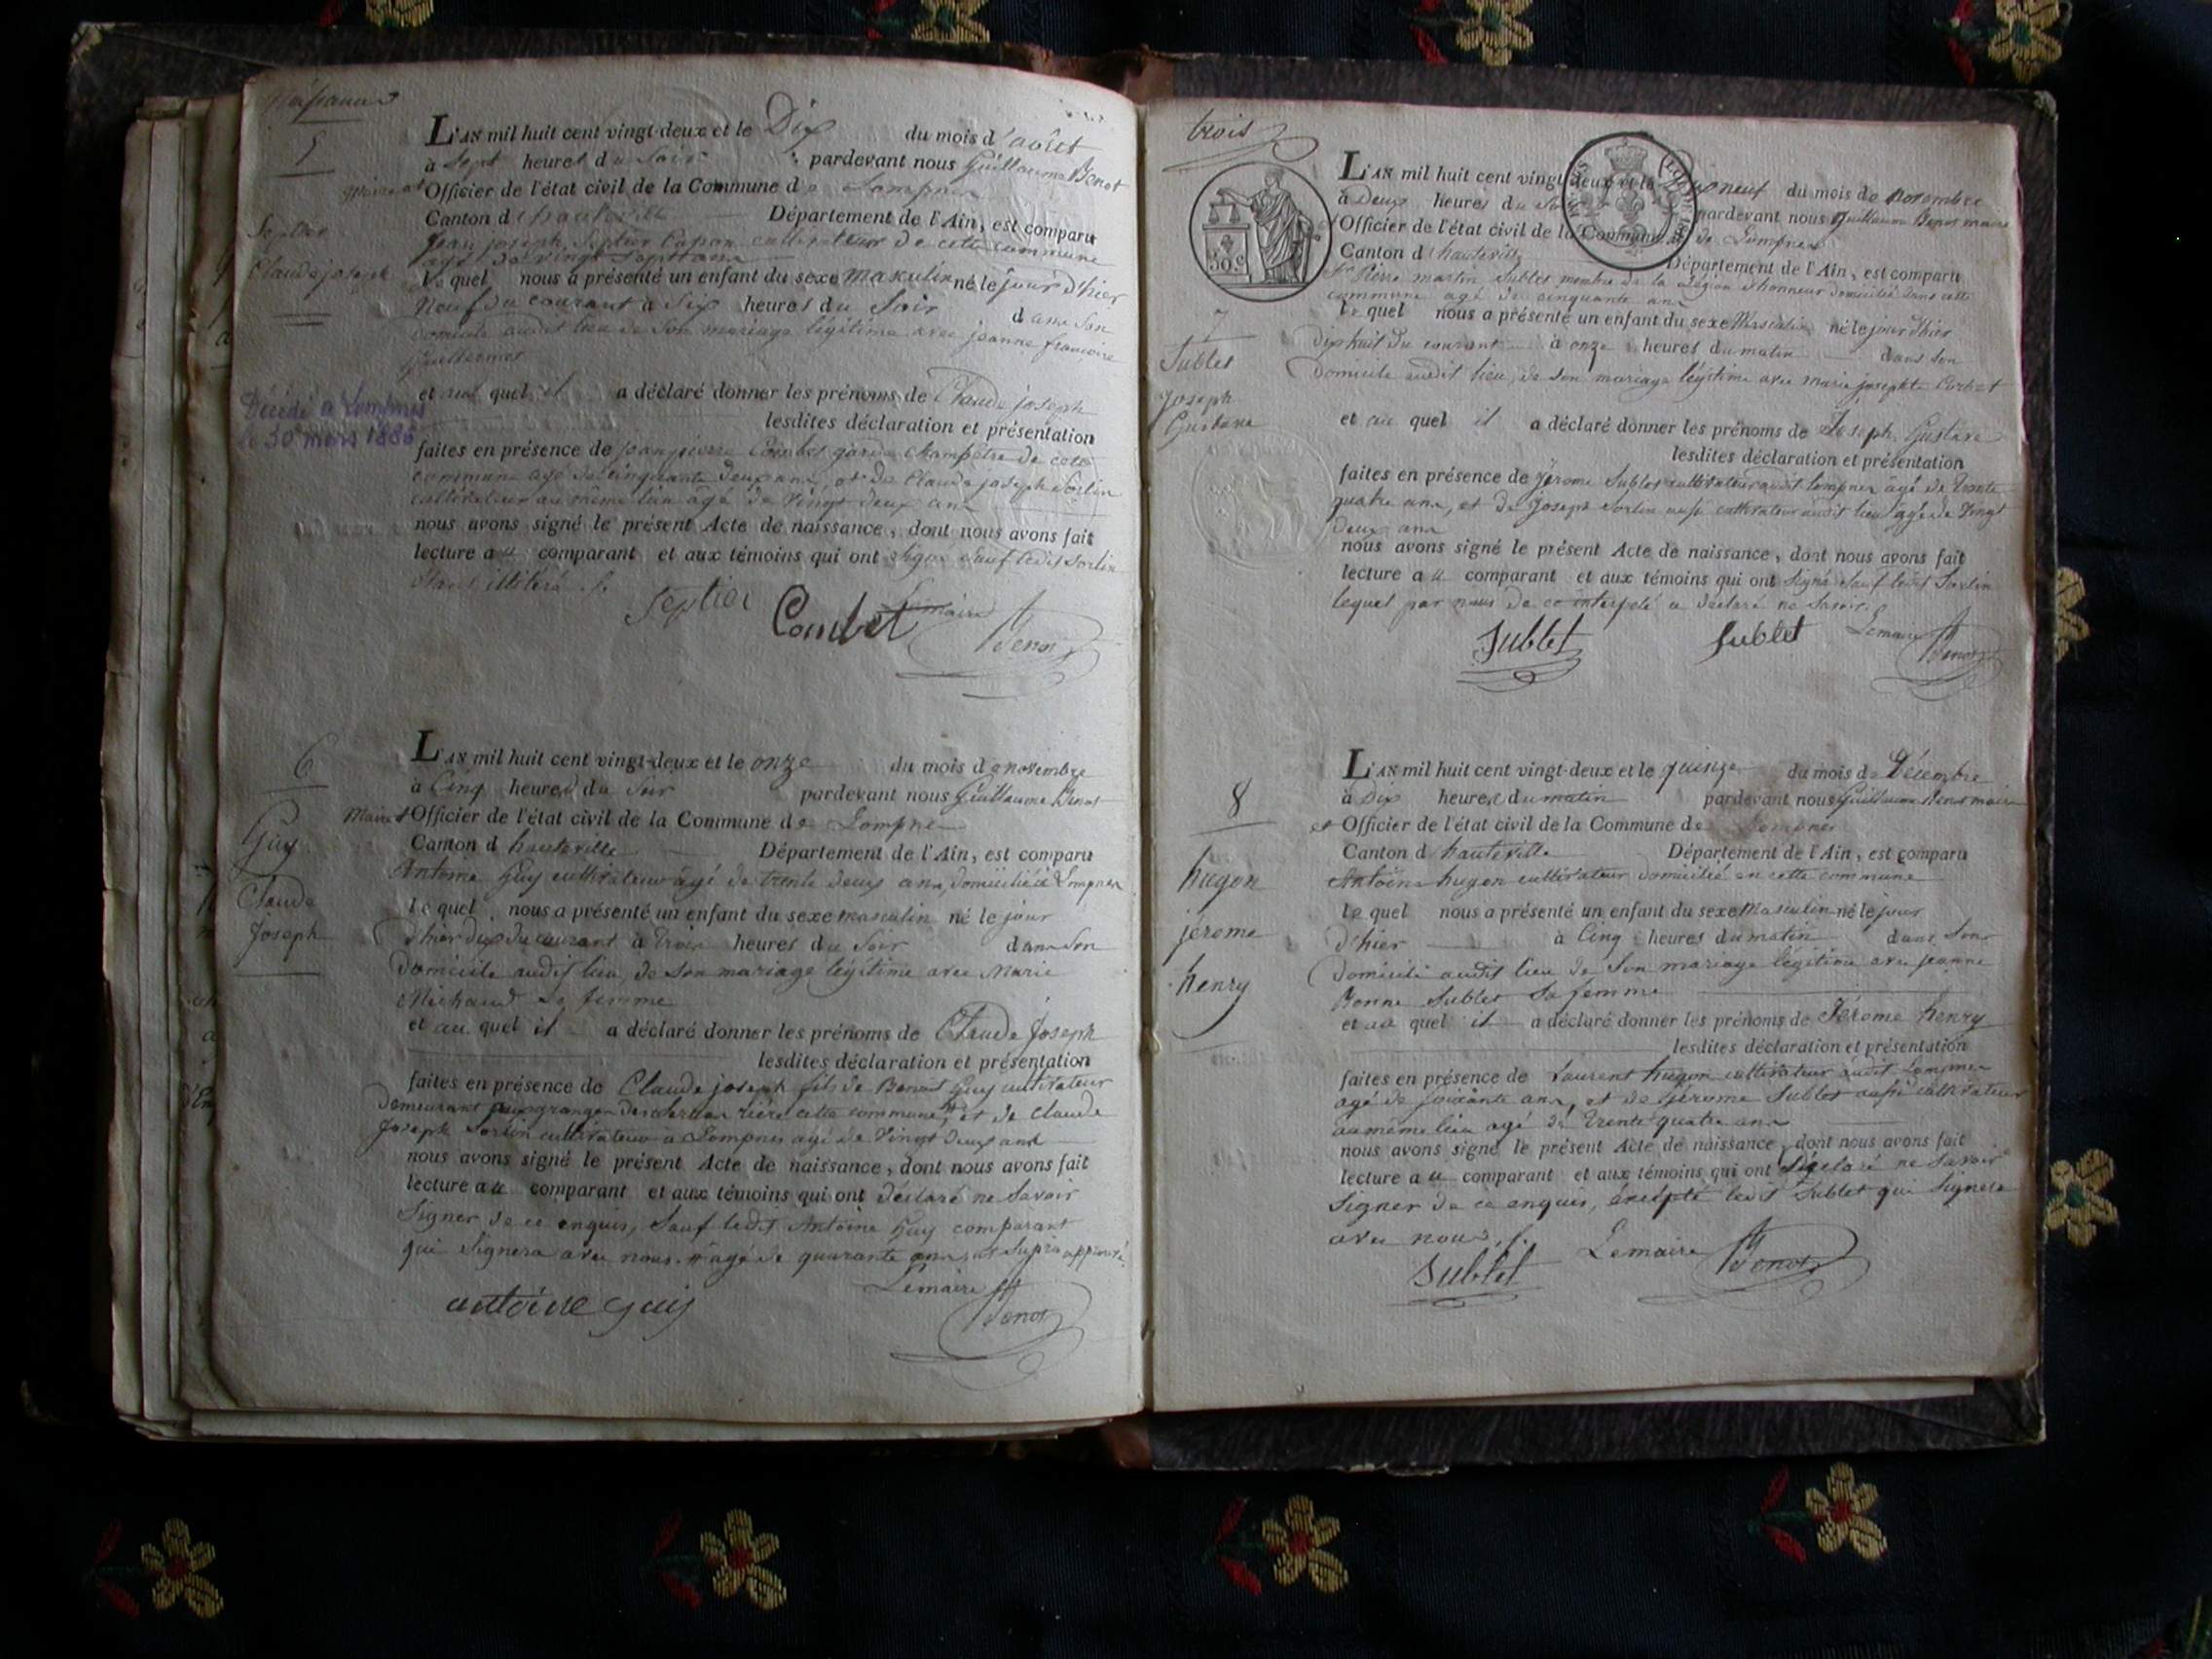 5
L'AN mil huit cent vingt-deux et le Dix du mois d'août
à Sept heures du Soir pardevant nous Guillaume Benot
Officier de l'état civil de la Commune de Lompnes
Canton d'hauteville Département de l'Ain, est comparu
Jean joseph Septier cultivateur de cette commune
agé de vingt Sept ans
le quel nous a présenté un enfant du sexe masculin né le jour d'hier
Neuf du courant à Six heures du Soir dans Son
domicile audit lieu de Son mariage légitime avec jeanne françoise
Guillermet
Septier
Claude joseph
et au quel il a déclaré donner les prénoms de Claude joseph
Décédé à Lompnes
le 30 mars 1886
lesdites déclaration et présentation
faites en présence de jean pierre Combet garde champêtre de cette
commune agé de cinquante deux ans, et de Claude joseph Sorlin
cultivateur au même lieu agé de vingt deux ans
nous avons signé le présent Acte de naissance, dont nous avons fait
lecture au comparant et aux témoins qui ont signé sauf ledit Sorlin
étant illitéré
Septier Combet Lemaire Benot
6
Guy
Claude
Joseph
L'AN mil huit cent vingt-deux et le onze du mois de novembre
à Cinq heures du Soir pardevant nous Guillaume Benot
Maire et Officier de l'état civil de la Commune de Lompnes
Canton d'hauteville Département de l'Ain, est comparu
Antoine Guy cultivateur agé de trente deux ans, domicilié à Lompnes
le quel nous a présenté un enfant du sexe masculin né le jour
d'hier dix du courant à trois heures du Soir dans Son
domicile audit lieu, de Son mariage légitime avec Marie
Michaud Sa femme
et au quel il a déclaré donner les prénoms de Claude Joseph
lesdites déclaration et présentation
faites en présence de Claude joseph fils de Benoit Guy cultivateur
demeurant aux granges rière cette commune, et de Claude
Joseph Sorlin cultivateur à Lompnes agé de Vingt deux ans
nous avons signé le présent Acte de naissance, dont nous avons fait
lecture au comparant et aux témoins qui ont déclaré ne Savoir
Signer de ce enquis, Sauf ledit Antoine Guy comparant
qui Signera avec nous. # agé de quarante ans, ut Supra approuvé.
Lemaire Benot
antoine guy
trois
30 c
L'AN mil huit cent vingt-deux et le dixneuf du mois de Novembre
à Deux heures du Soir pardevant nous Guillaume Benot maire
et Officier de l'état civil de la Commune de Lompnes
Canton d'hauteville Département de l'Ain, est comparu
Sr Pierre martin Sublet membre de la Légion d'honneur domicilié dans cette
commune agé de cinquante ans
le quel nous a présenté un enfant du sexe Masculin né le jour d'hier
dix huit du courant à onze heures du matin dans Son
domicile audit lieu, de son mariage légitime avec marie josephte
7
Sublet
Joseph
Gustave
et au quel il a déclaré donner les prénoms de Joseph Gustave
lesdites déclaration et présentation
faites en présence de Jérome Sublet cultivateur audit Lompnes agé de trente
quatre ans, et de Joseph Sorlin aussi cultivateur audit lieu agé de Vingt
deux ans
nous avons signé le présent Acte de naissance, dont nous avons fait
lecture au comparant et aux témoins qui ont Signé Sauf ledit Sorlin
lequel par nous de ce interpelé a déclaré ne Savoir.
Sublet Sublet Lemaire Benot
8
hugon
jérome
henry
L'AN mil huit cent vingt-deux et le quinze du mois de Décembre
à Dix heures du matin pardevant nous Guillaume Benot maire
et Officier de l'état civil de la Commune de Lompnes
Canton d'hauteville Département de l'Ain, est comparu
Antoine hugon cultivateur domicilié en cette commune
le quel nous a présenté un enfant du sexe Masculin né le jour
d'hier à Cinq heures du matin dans Son
domicile audit lieu de Son mariage légitime avec jeanne
Bonne Sublet Sa femme
et au quel il a déclaré donner les prénoms de Jérome henry
lesdites déclaration et présentation
faites en présence de Laurent hugon cultivateur audit Lompnes
agé de soixante ans, et de Jérome Sublet aussi cultivateur
au même lieu agé de trente quatre ans
nous avons signé le présent Acte de naissance, dont nous avons fait
lecture au comparant et aux témoins qui ont déclaré ne Savoir
Signer de ce enquis, excepté ledit Sublet qui Signera
avec nous.
Sublet Lemaire Benot